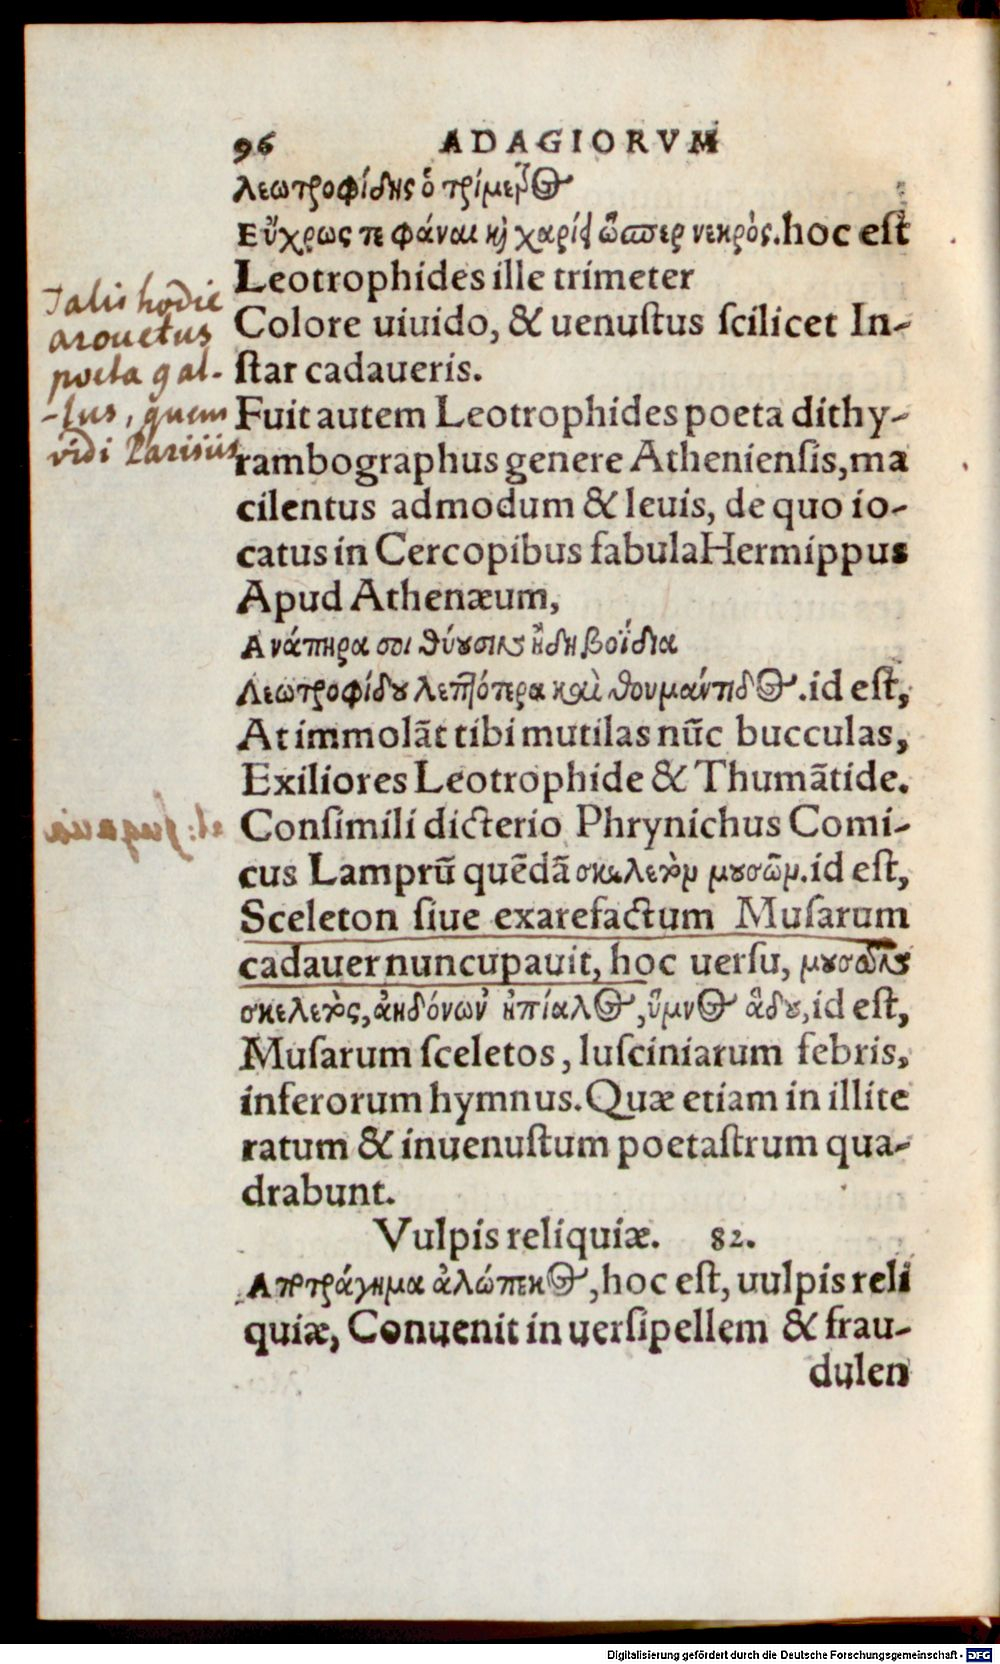 96 ADAGIORVM
λεωτροφίδης ὁ τρίμετρος
Εὔχρως τε φάναι κὴ χαρίεις ὥσπερ νεκρὸς. hoc est
Leotrophides ille trimeter
Colore uiuido, & uenustus scilicet In-
star cadaueris.
Talis hodie
arouetus
poeta gal-
-lus, quem
vidi Parisiis
Fuit autem Leotrophides poeta dithy-
rambographus genere Atheniensis, ma
cilentus admodum & leuis, de quo io-
catus in Cercopibus fabula Hermippus
Apud Athenæum,
Ανάπηρα σοι θύουσιν ἤδη βοΐδια
Λεωτροφίδου λεπτότερα καὶ θουμάντιδος. id est,
At immolãt tibi mutilas nũc bucculas,
Exiliores Leotrophide & Thumãtide.
Consimili dicterio Phrynichus Comi-
cus Lamprũ quẽdã σκελετὸν μουσῶν. id est,
Sceleton siue exarefactum Musarum
cadauer nuncupauit, hoc uersu, μουσῶν
σκελετὸς, ἀηδόνων ἠπίαλος, ὕμνος ἅδου, id est,
Musarum sceletos, lusciniarum febris,
inferorum hymnus. Quæ etiam in illite
ratum & inuenustum poetastrum qua-
drabunt.
Vulpis reliquiæ. 82.
Αποτράγημα ἀλώπεκος, hoc est, uulpis reli
quiæ, Conuenit in uersipellem & frau-
dulen
Digitalisierung gefördert durch die Deutsche Forschungsgemeinschaft - DFG